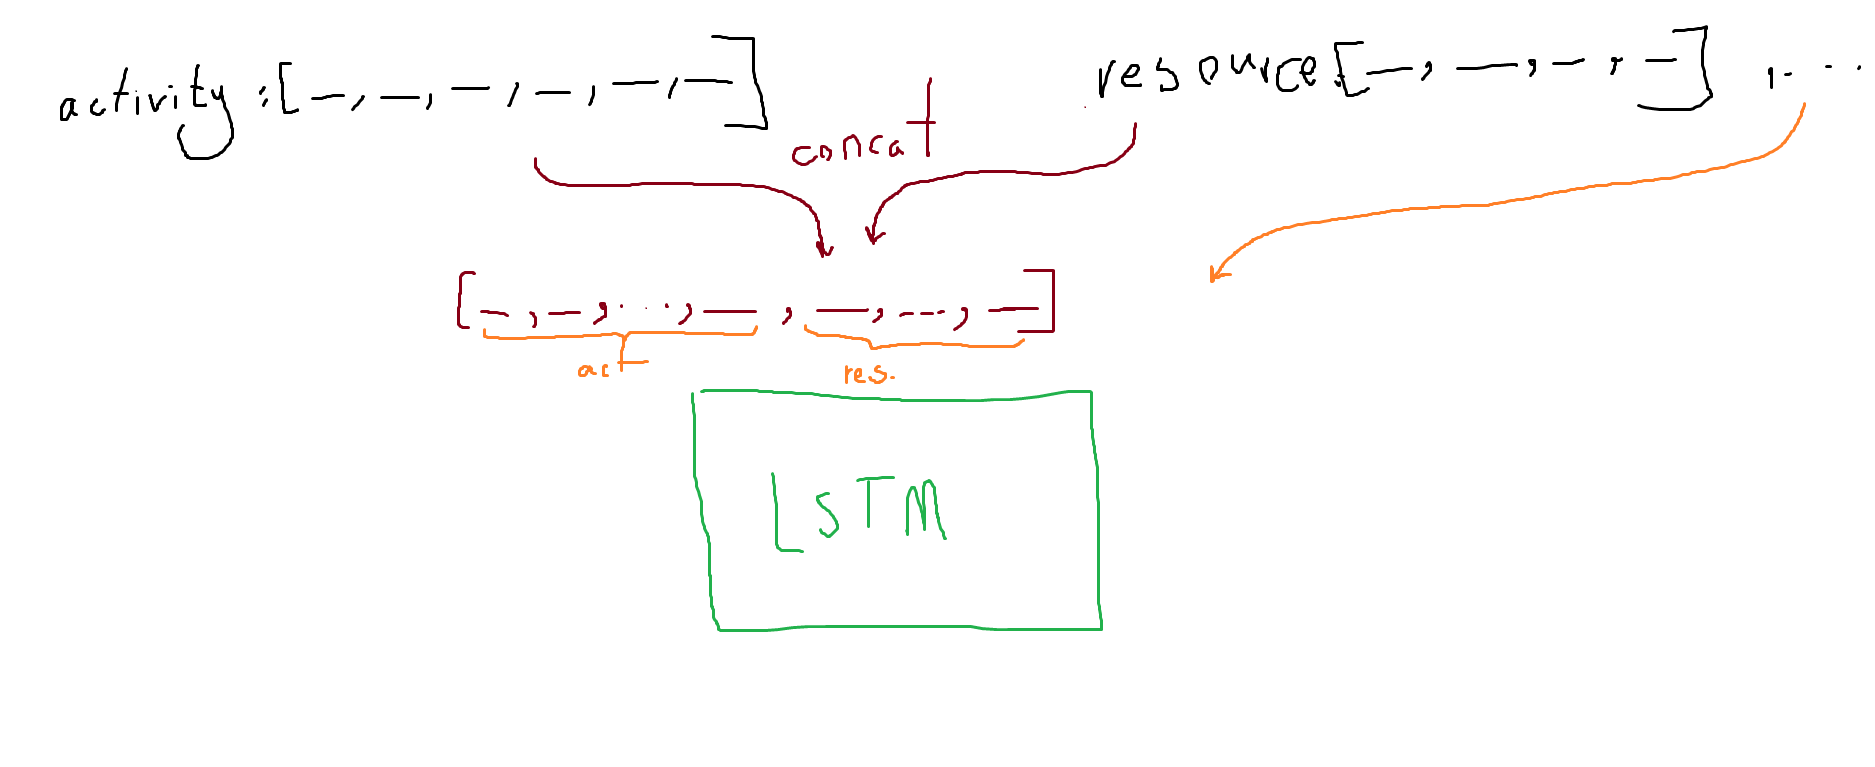 activity :[—, —, —, —, —, —] resource:[—, —, —, —] , . . .
concat
[—, —, ..., —, —, ..., —]
act res.
LSTM